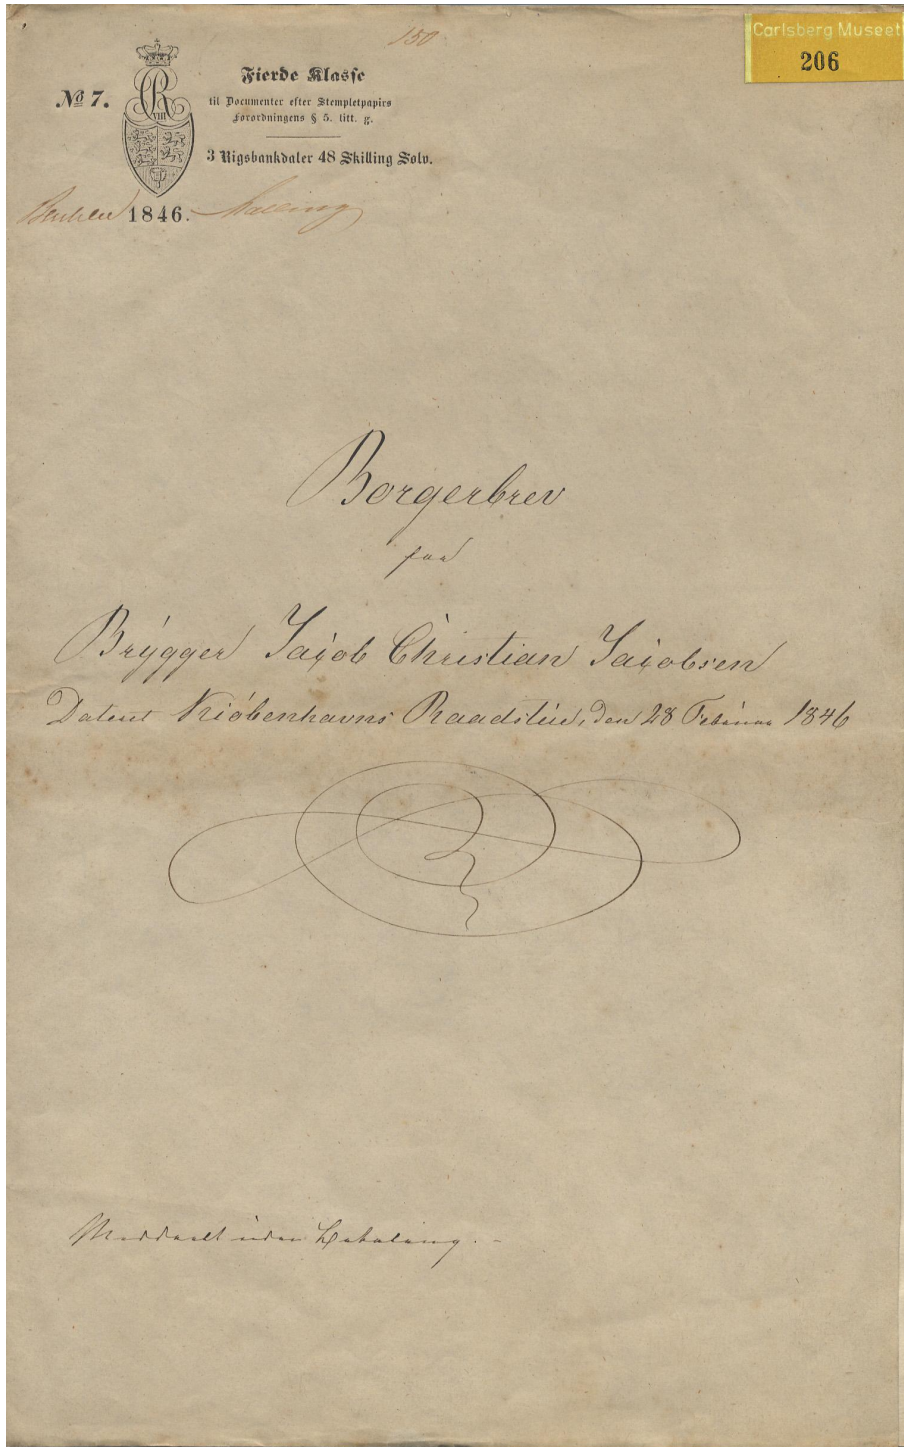 150
Carlsberg Museet
206
No 7.
Fierde Klasse
til Documenter efter Stempletpapirs
Forordningens § 5. litt. g.
3 Rigsbankdaler 48 Skilling Sølv.
1846.
Borgerbrev
for
Brÿgger Jacob Christian Jacobsen
Dateret Kiøbenhavns Raadstue, den 28 Februar 1846
Meddeelt uden Betaling. -